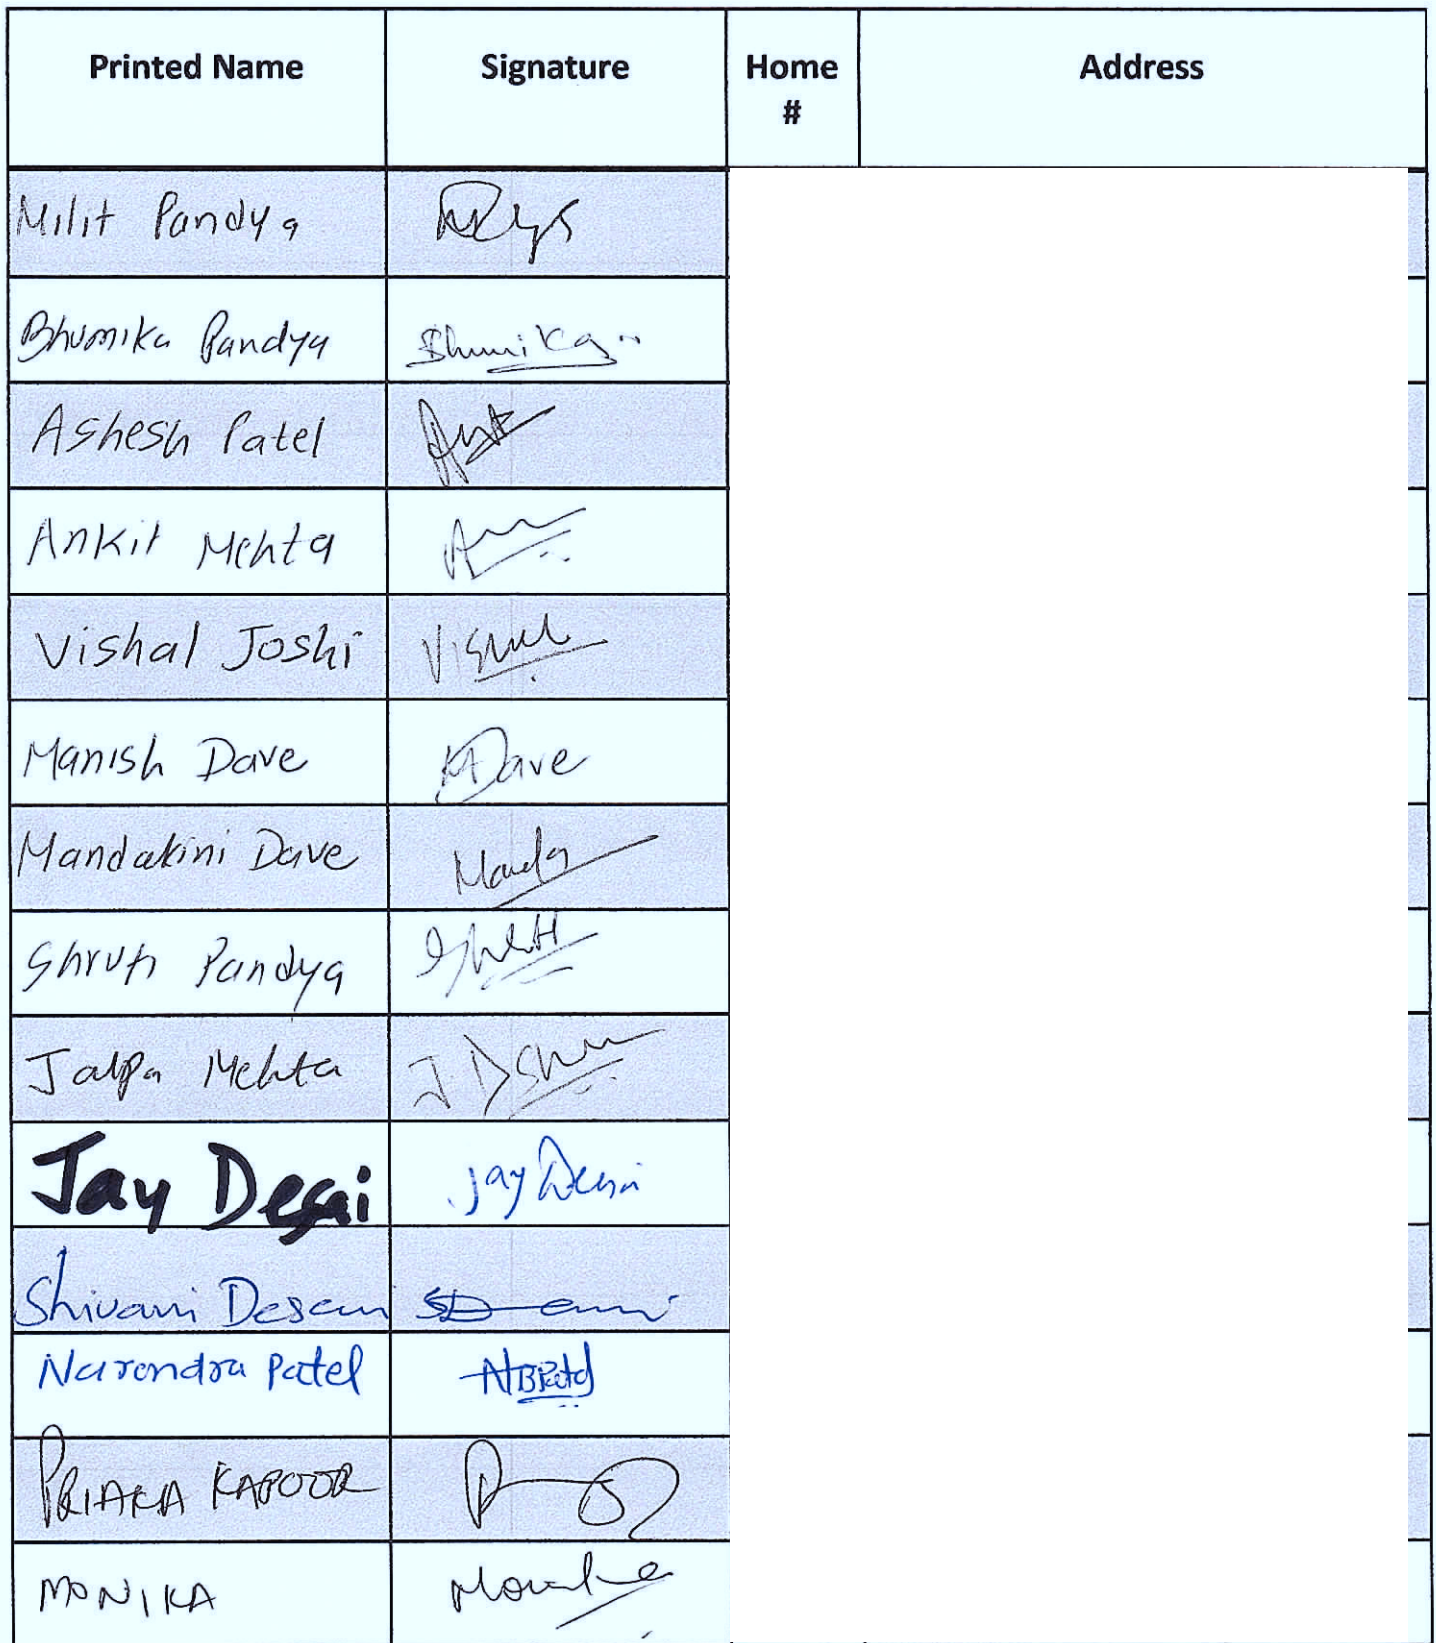 Printed Name Signature Home # Address
Milit Pandya
Bhumika Pandya Bhumika
Ashesh Patel
Ankit Mehta
Vishal Joshi Vishal
Manish Dave MDave
Mandakini Dave Manda
Shruti Pandya Shruti
Jalpa Mehta
Jay Desai Jay Desai
Shivani Desai
Narendra Patel NBPatel
PRIAKA KAPOOR
MONIKA Monika